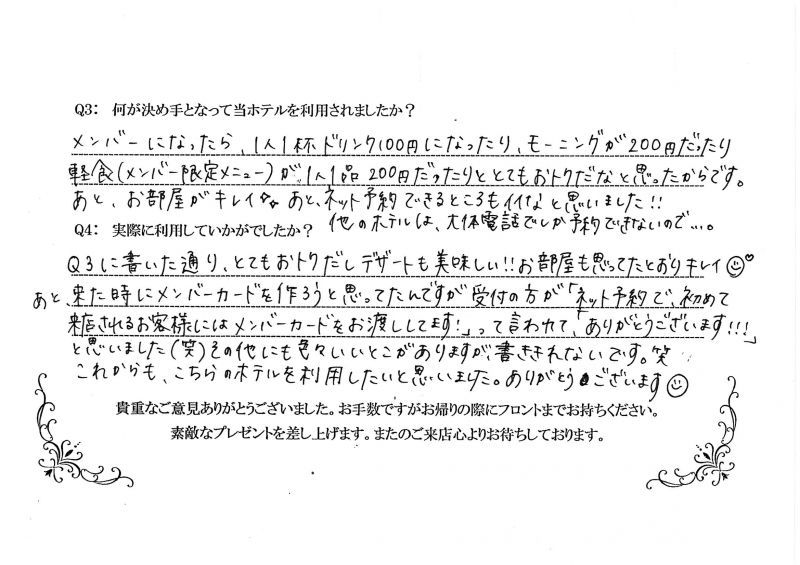 Q3: 何が決め手となって当ホテルを利用されましたか？
メンバーになったら、1人1杯ドリンク100円になったり、モーニングが200円だったり
軽食(メンバー限定メニュー)が、1人1品200円だったりととてもおトクだなと思ったからです。
あと、お部屋がキレイ☆☆ あと、ネット予約できるところもイイなと思いました!!
他のホテルは、大体電話でしか予約できないので…。
Q4: 実際に利用していかがでしたか？
Q3に書いた通り、とてもおトクだしデザートも美味しい!!お部屋も思ってたとおりキレイ☺♡
あと、来た時にメンバーカードを作ろうと思ってたんですが受付の方が「ネット予約で、初めて
来店されるお客様にはメンバーカードをお渡ししてます!」って言われて、「ありがとうございます!!!」
と思いました(笑)その他にも色々いいとこがありますが書ききれないです。笑
これからも、こちらのホテルを利用したいと思いました。ありがとうございます☺
貴重なご意見ありがとうございました。お手数ですがお帰りの際にフロントまでお持ちください。
素敵なプレゼントを差し上げます。またのご来店心よりお待ちしております。